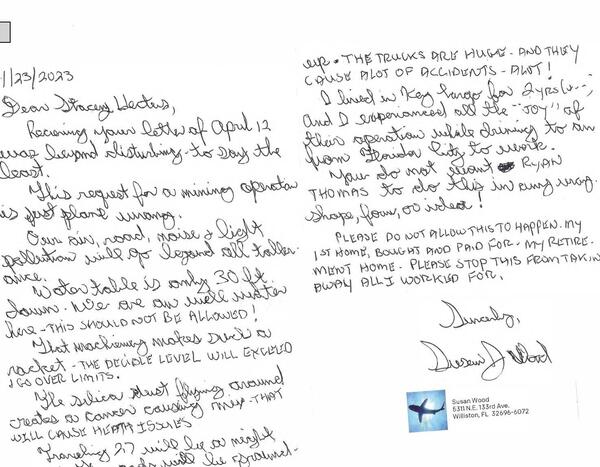 1/23/2023
Dear Stacey Hectus,
Receiving your letter of April 12
was beyond disturbing - to say the
least.
This request for a mining operation
is just plane wrong.
Our air, road, noise & light
pollution will go beyond all toller-
ance.
Water table is only 30 ft.
down. We are on well water
here - THIS SHOULD NOT BE ALLOWED!
That machinery makes such a
racket - THE DECIBLE LEVEL WILL EXCEED
& GO OVER LIMITS.
The silica dust flying around
creates a cancer causing mix - THAT
WILL CAUSE HEATH ISSUES
Traveling 27 will be a night
roads will be ground-
up. THE TRUCKS ARE HUGE - AND THEY
CAUSE ALOT OF ACCIDENTS - ALOT!
I lived in Key Largo for 2 yrs
and I experienced all the "JOY" of
their operation while driving to an
from Florida City to work.
You do not want RYAN
THOMAS to do this in any way,
shape, form, or idea!
PLEASE DO NOT ALLOW THIS TO HAPPEN. MY
1ST HOME, BOUGHT AND PAID FOR - MY RETIRE-
MENT HOME - PLEASE STOP THIS FROM TAKIN
AWAY ALL I WORKED FOR.
Sincerly,
Susan J Wood
Susan Wood
5311 N.E. 133rd Ave.
Williston, FL 32696-6072